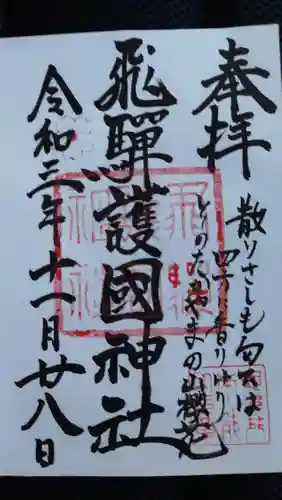 奉拝
散りさしも匂ひは
四方に香りけり
ひのたかやまの山櫻花
飛騨護國神社
令和三年十一月廿八日